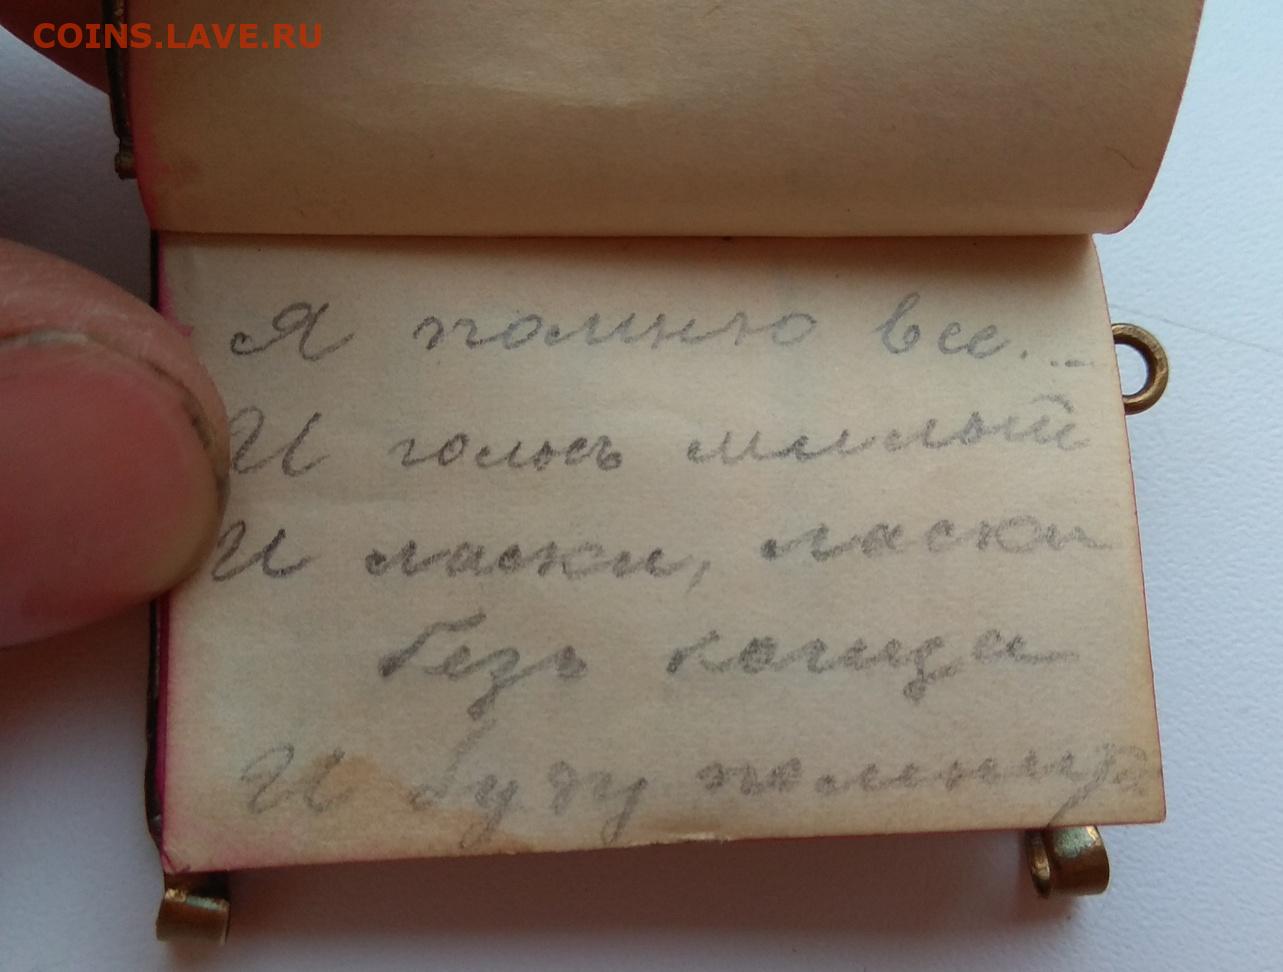 COINS.LAVE.RU
Я помню все...
И голосъ милый
И ласки, ласки
безъ конца
И буду помнить